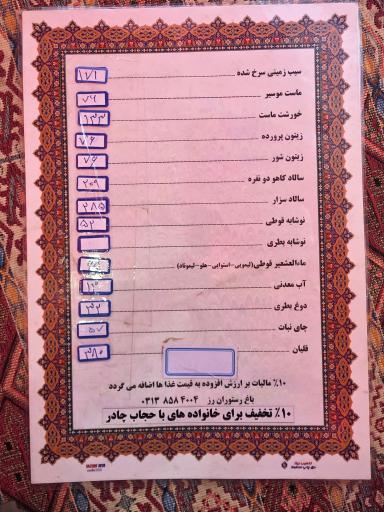 سیب زمینی سرخ شده ۱۷۱
ماست موسیر ۷۶
خورشت ماست ۱۳۳
زیتون پرورده ۷۶
زیتون شور ۷۶
سالاد کاهو دو نفره ۲۰۹
سالاد سزار ۲۸۵
نوشابه قوطی ۵۲
نوشابه بطری
ماءالشعیر قوطی(لیمویی-استوایی-هلو-لیموناد)
آب معدنی
دوغ بطری ۳۲
چای نبات ۵۷
قلیان ۳۸۰
۱۰٪ مالیات بر ارزش افزوده به قیمت غذا ها اضافه می گردد
باغ رستوران رز ۰۳۱۳ ۸۵۸ ۴۰۰۴
۱۰٪ تخفیف برای خانواده های با حجاب چادر